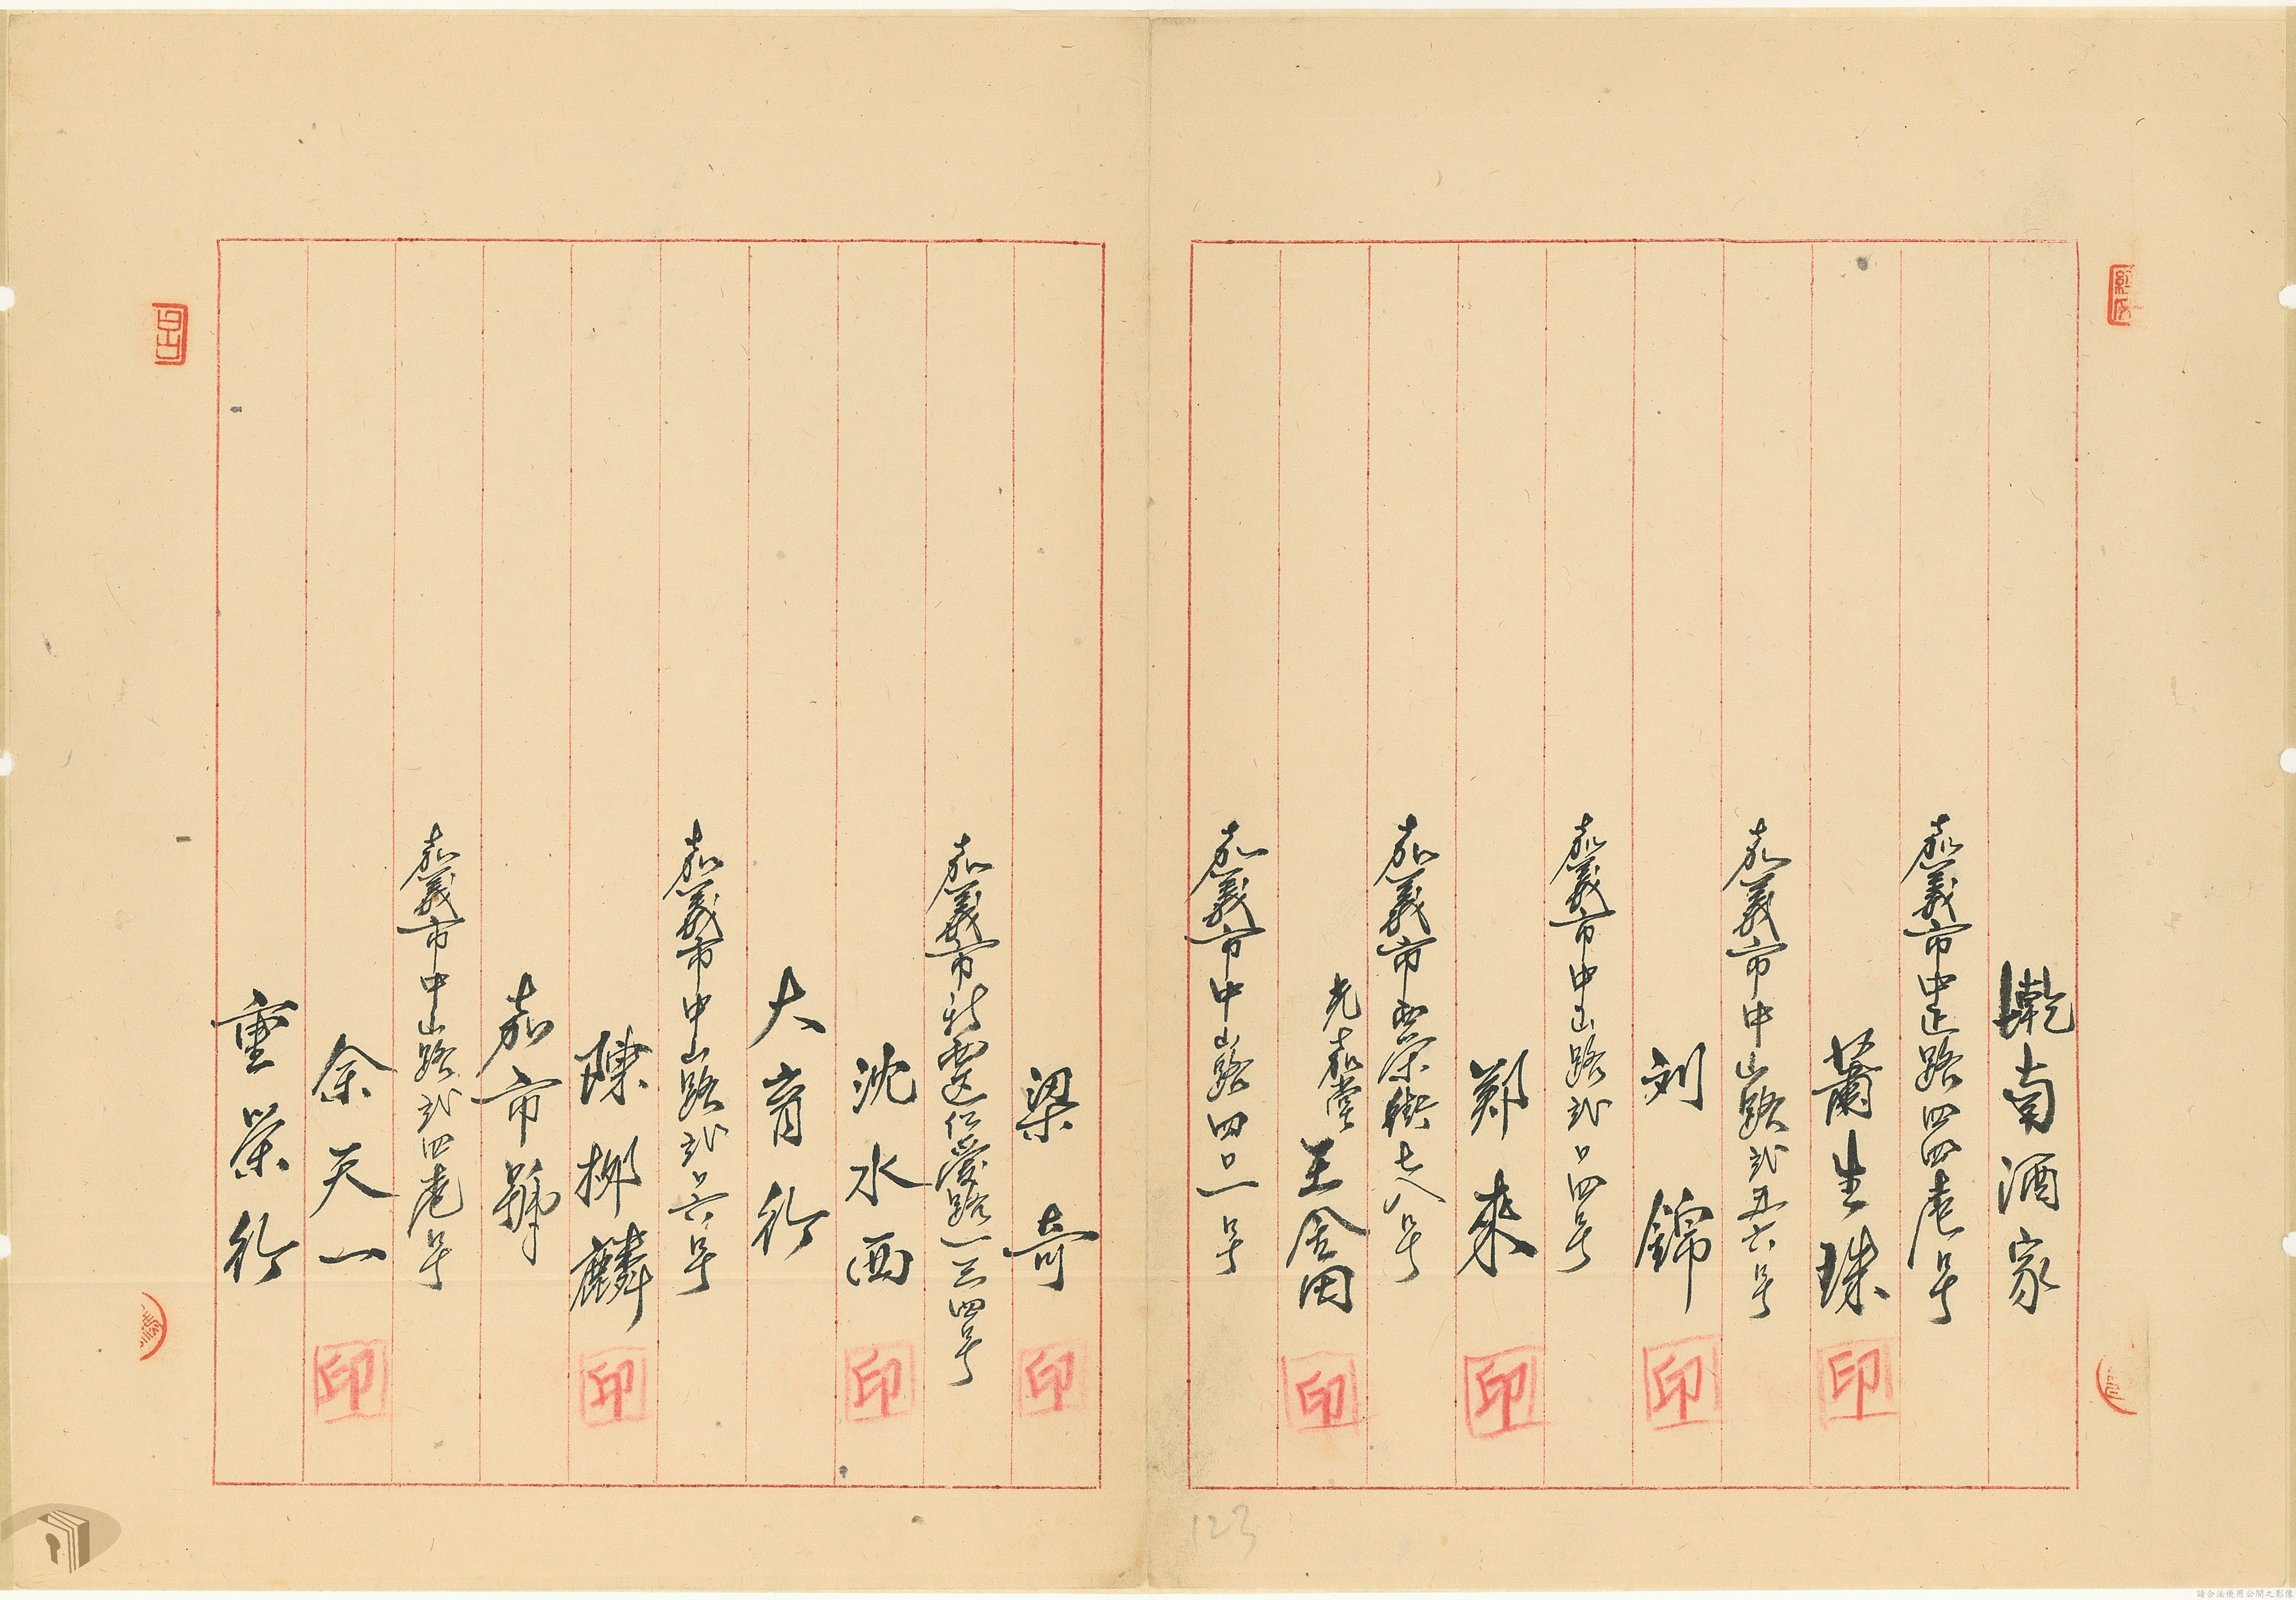 乾南酒家
嘉義市中正路四四壱号
蕭生珠 印
嘉義市中山路弍五六号
刘錦 印
嘉義市中山路弍口四号
鄭來 印
嘉義市西榮街七八号
光嘉堂 王金田 印
嘉義市中山路四口一号
梁奇 印
嘉義市新西區仁愛路一三四号
沈水西 印
大育行
嘉義市中山路弍口六号
陳柳麟 印
嘉市號
嘉義市中山路弍四壱号
余天一 印
重榮行
123
請合法使用公開之影像